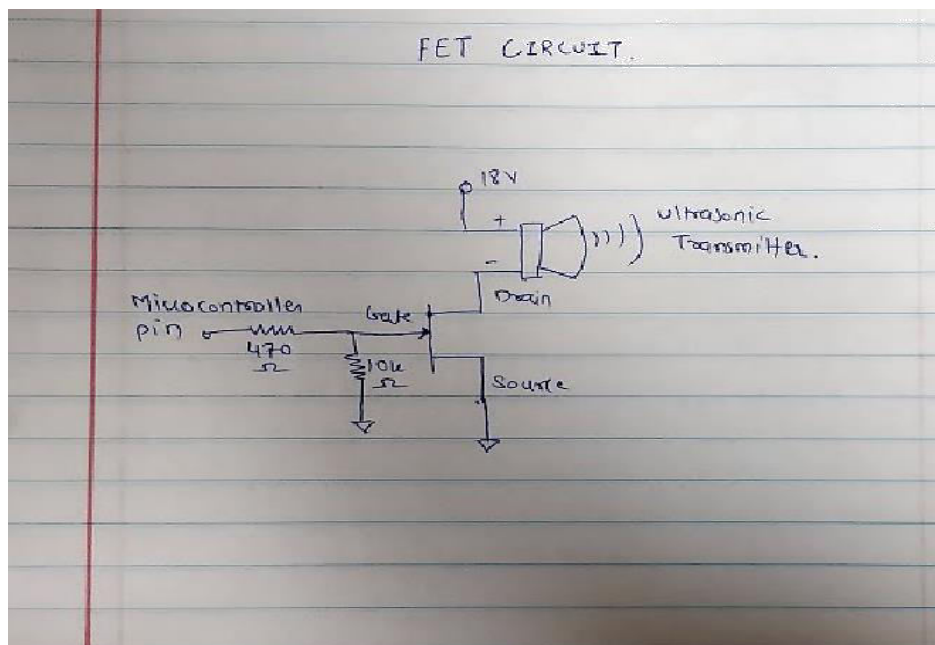 FET CIRCUIT.
18V
+
Ultrasonic
Transmitter.
-
Drain
Microcontroller
pin
Gate
470
Ω
10k
Ω
Source